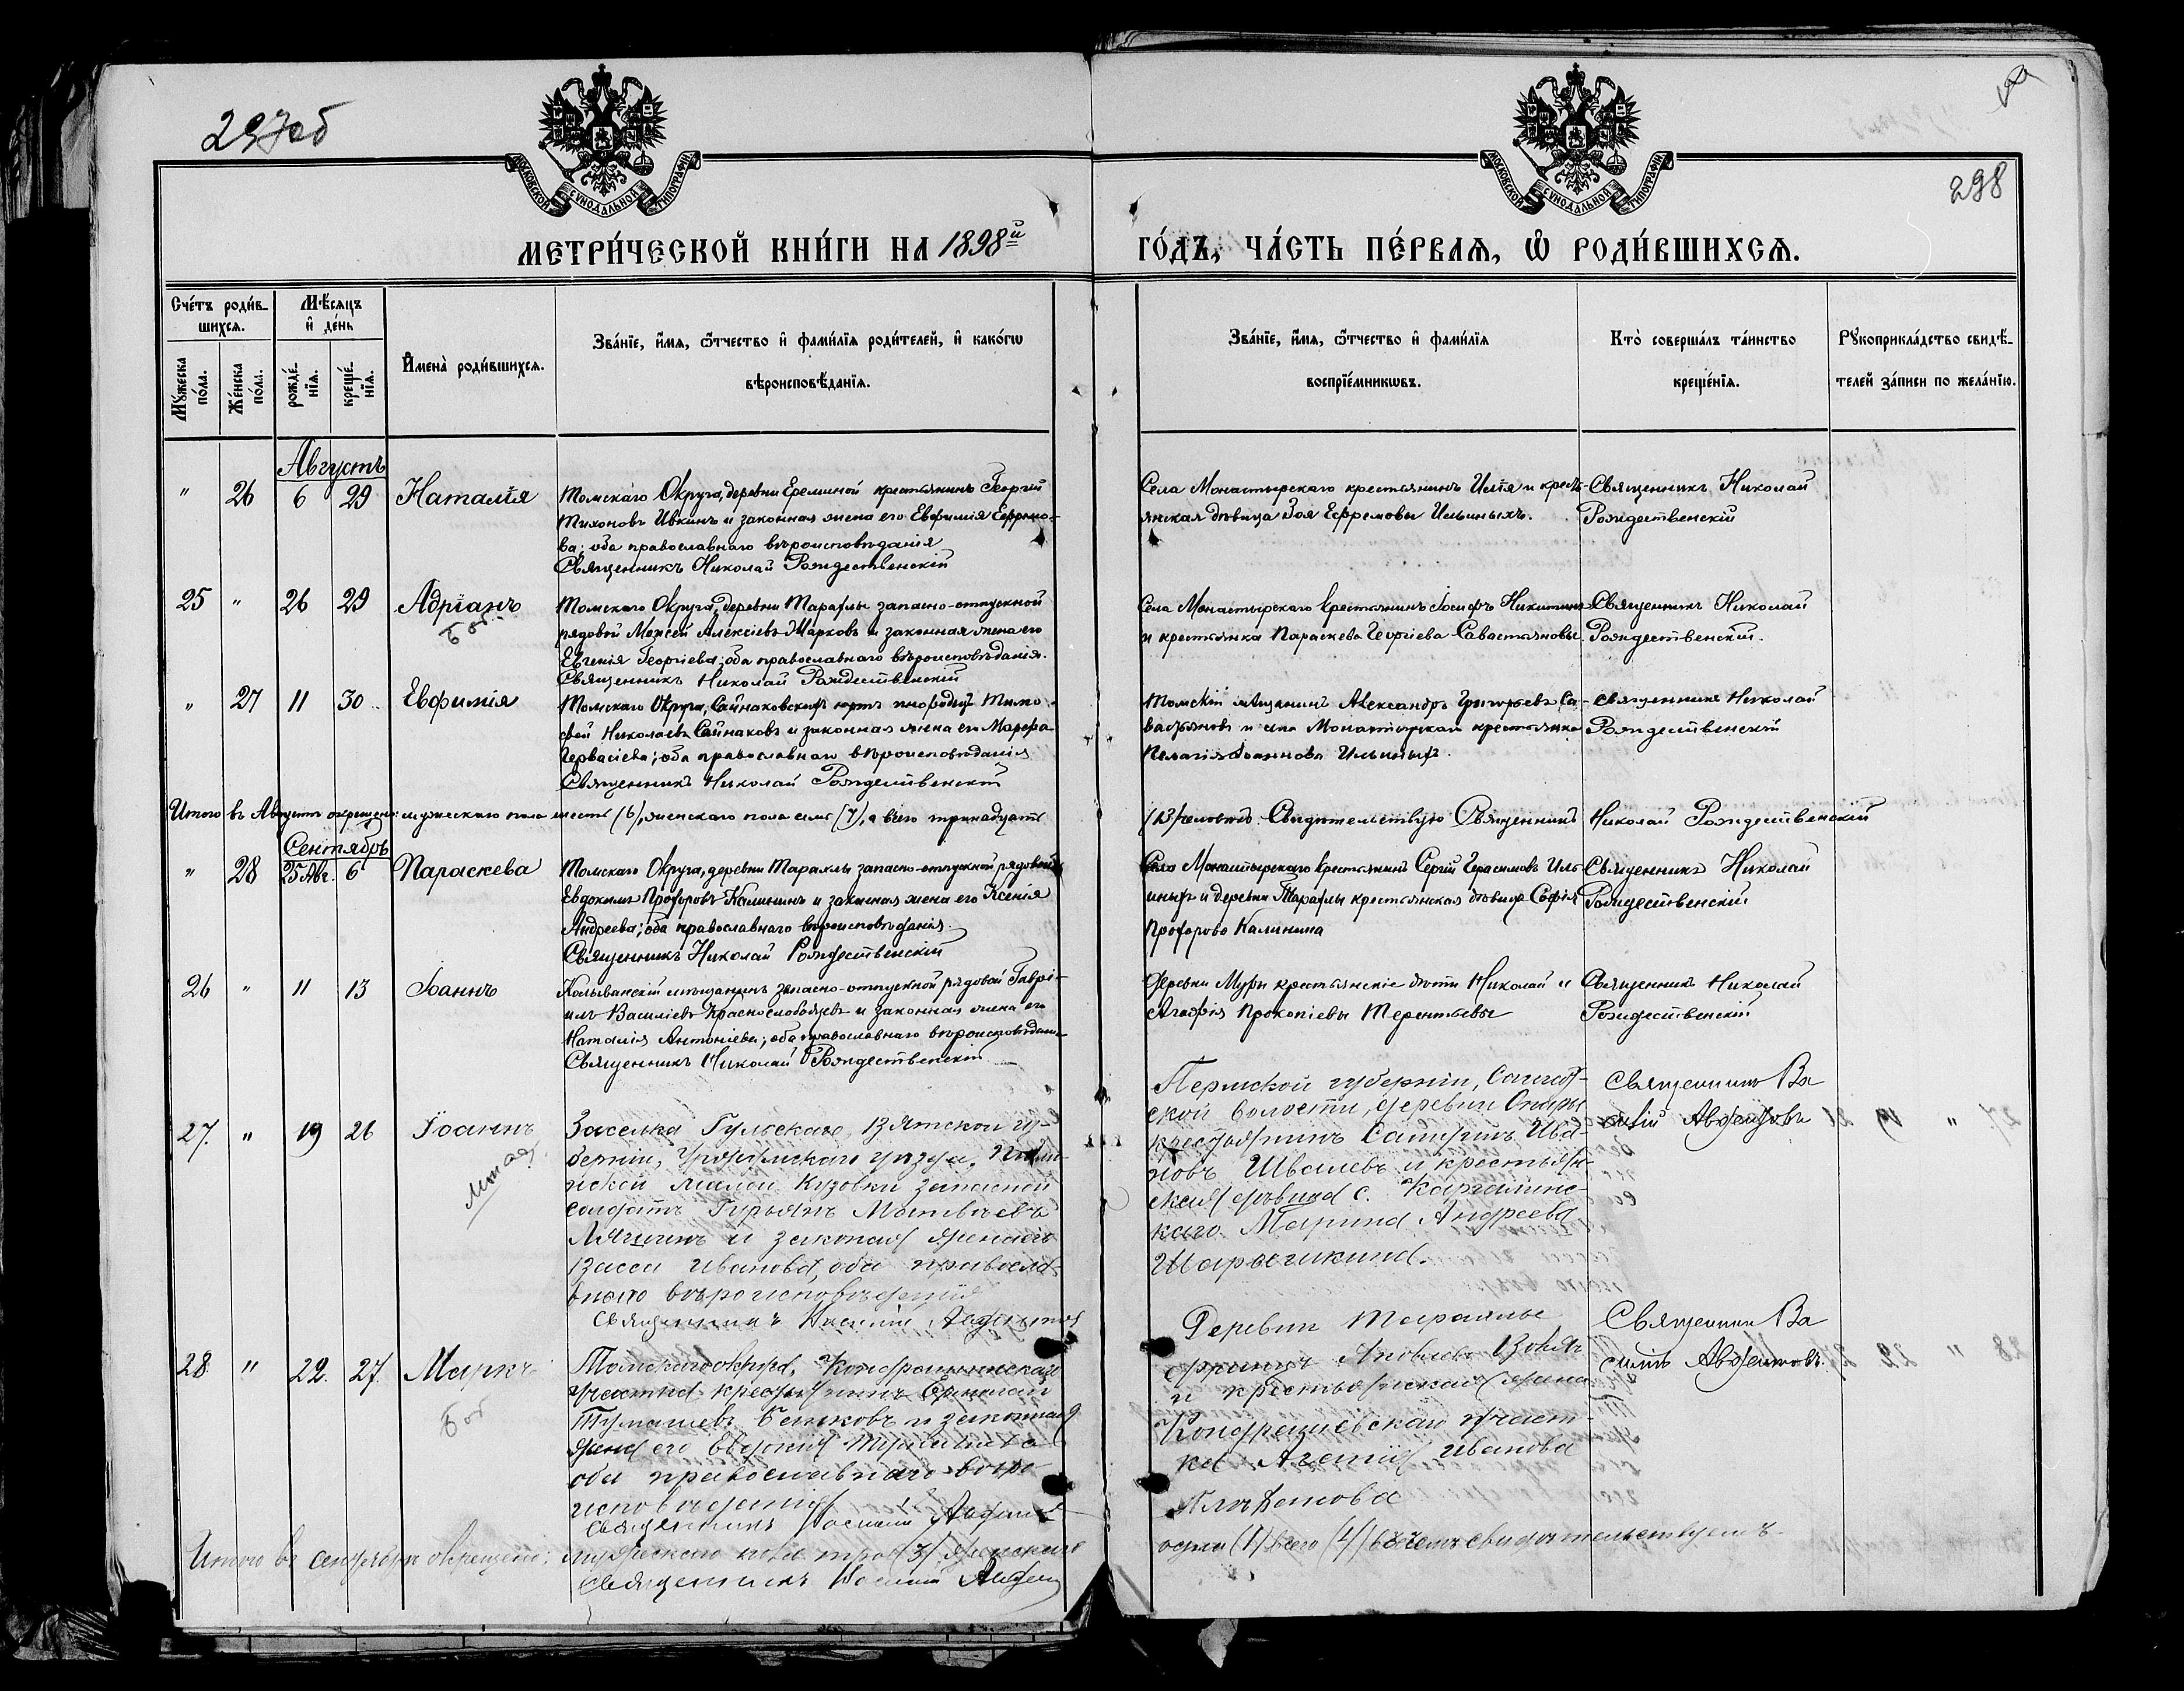 297об
298
МОСКОВСКОЙ СѴНОДАЛЬНОЙ ТИПОГРАФІИ
МОСКОВСКОЙ СѴНОДАЛЬНОЙ ТИПОГРАФІИ
МЕТРИ́ЧЕСКОЙ КНИ́ГИ НА 1898й
ГО́ДЪ, ЧА́СТЬ ПЕ́РВАѦ, Ѿ РОДИ́ВШИХСѦ.
Сче́тъ роди́в-
шихсѧ.
Мꙋ́жеска по́ла.
Же́нска по́ла.
Мѣ́сѧцъ
и҆ де́нь
рожде́-
нїѧ.
креще́-
нїѧ.
И҆мена̀ роди́вшихсѧ.
Зва́нїе, и҆́мѧ, ѻ҆́тчество и҆ фами́лїѧ роди́телей, и҆ како́гѡ
вѣроисповѣ́данїѧ.
Зва́нїе, и҆́мѧ, ѻ҆́тчество и҆ фами́лїѧ
воспрїе́мникѡвъ.
Кто̀ соверша́лъ та́инство
креще́нїѧ.
Рꙋкоприкла́дство свидѣ́-
телей за́писи по жела́нїю.
Августъ
" 26 6 29 Наталія
Томскаго Округа, деревни Ереминой крестьянинъ Георгій
Тихоновъ Ивкинъ и законная жена его Евфимія Ефремо-
ва; оба православнаго вѣроисповѣданія
Священникъ Николай Рождественскій
Села Монастырскаго крестьянинъ Илія и кресть-
янская дѣвица Зоя Ефремовы Ильиныхъ.
Священникъ Николай
Рождественскій
25 " 26 29 Адріанъ
Боб.
Томскаго Округа, деревни Тараклы запасно-отпускной
рядовой Моисей Алексіевъ Марковъ и законная жена его
Евгенія Георгіева; оба православнаго вѣроисповѣданія.
Священникъ Николай Рождественскій
Села Монастырскаго крестьянинъ Іосифъ Никитинъ
и крестьянка Параскева Георгіева Савастьяновы.
Священникъ Николай
Рождественскій.
" 27 11 30 Евфимія
Томскаго Округа, Сайнаковскихъ юртъ инородецъ Тимо-
фей Николаевъ Сайнаковъ и законная жена его Марфа
Гервасіева; оба православнаго вѣроисповѣданія
Священникъ Николай Рождественскій
Томскій мѣщанинъ Александръ Григорьевъ Са-
вастьяновъ и села Монастырскаго крестьянка
Пелагія Іоаннова Ильиныхъ.
Священникъ Николай
Рождественскій
Итого въ Августѣ окрещено: мужескаго пола шесть (6), женскаго пола семь (7), а всего тринадцать
(13) человѣкъ. Свидѣтельствую Священникъ Николай Рождественскій
Сентябрь
" 28 25 Авг. 6 Параскева
Томскаго Округа, деревни Тараклы запасно-отпускной рядовой
Евдокимъ Прохоровъ Калининъ и законная жена его Ксенія
Андреева; оба православнаго вѣроисповѣданія.
Священникъ Николай Рождественскій
Села Монастырскаго крестьянинъ Сергій Герасимовъ Иль-
иныхъ и деревни Тараклы крестьянская дѣвица Софія
Прохорова Калинина
Священникъ Николай
Рождественскій
26 " 11 13 Іоаннъ
Колыванскій мѣщанинъ запасно-отпускной рядовой Гаврі-
илъ Василіевъ Краснослободцевъ и законная жена его
Наталія Антоніева; оба православнаго вѣроисповѣданія
Священникъ Николай Рождественскій
Деревни Муры крестьянскіе дѣти Николай и
Агафія Прокопіевы Терентьевы
Священникъ Николай
Рождественскій
27. " 19 26 Іоаннъ
Заселка Гульскаго, Вятской гу-
берніи, Уржумскаго уѣзда,
Малой Кузовки запасной
солдатъ Гурьянъ Матвѣевъ
и законая жена его
Васса Иванова, оба правосла-
внаго вѣроисповѣданія
Священникъ Василій
Пермской губерніи,
ской волости, деревни
крестьянинъ Ива-
новъ Ивалевъ и крестьян-
ская дѣвица с. Каргалинс-
каго Марина Андреева
Священникъ Ва
силій
28. " 22. 27. Маркъ
Боб
Томскаго округа,
участка крестьянинъ
и законная
жена его Евдокія
оба православнаго вѣро
исповѣданія
Священникъ Василій
Деревни Тараклы
Яковлевъ
и крестьянская жена
участ-
ка Иванова
Священникъ Ва
силій
Итого въ сентябрѣ окрещено: мужескаго пола трое (3) женскаго
одна (1) всего (4) въ чемъ свидѣтельствуемъ
Священникъ Василій